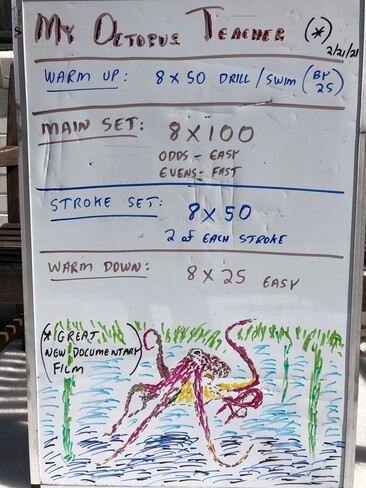 My Octopus Teacher (*)
2/21/21
WARM UP: 8 x 50 DRILL / SWIM (BY 25)
MAIN SET: 8 x 100
ODDS - EASY
EVENS - FAST
STROKE SET: 8 x 50
2 of EACH STROKE
WARM DOWN: 8 x 25 EASY
(* GREAT
NEW DOCUMENTARY
FILM)